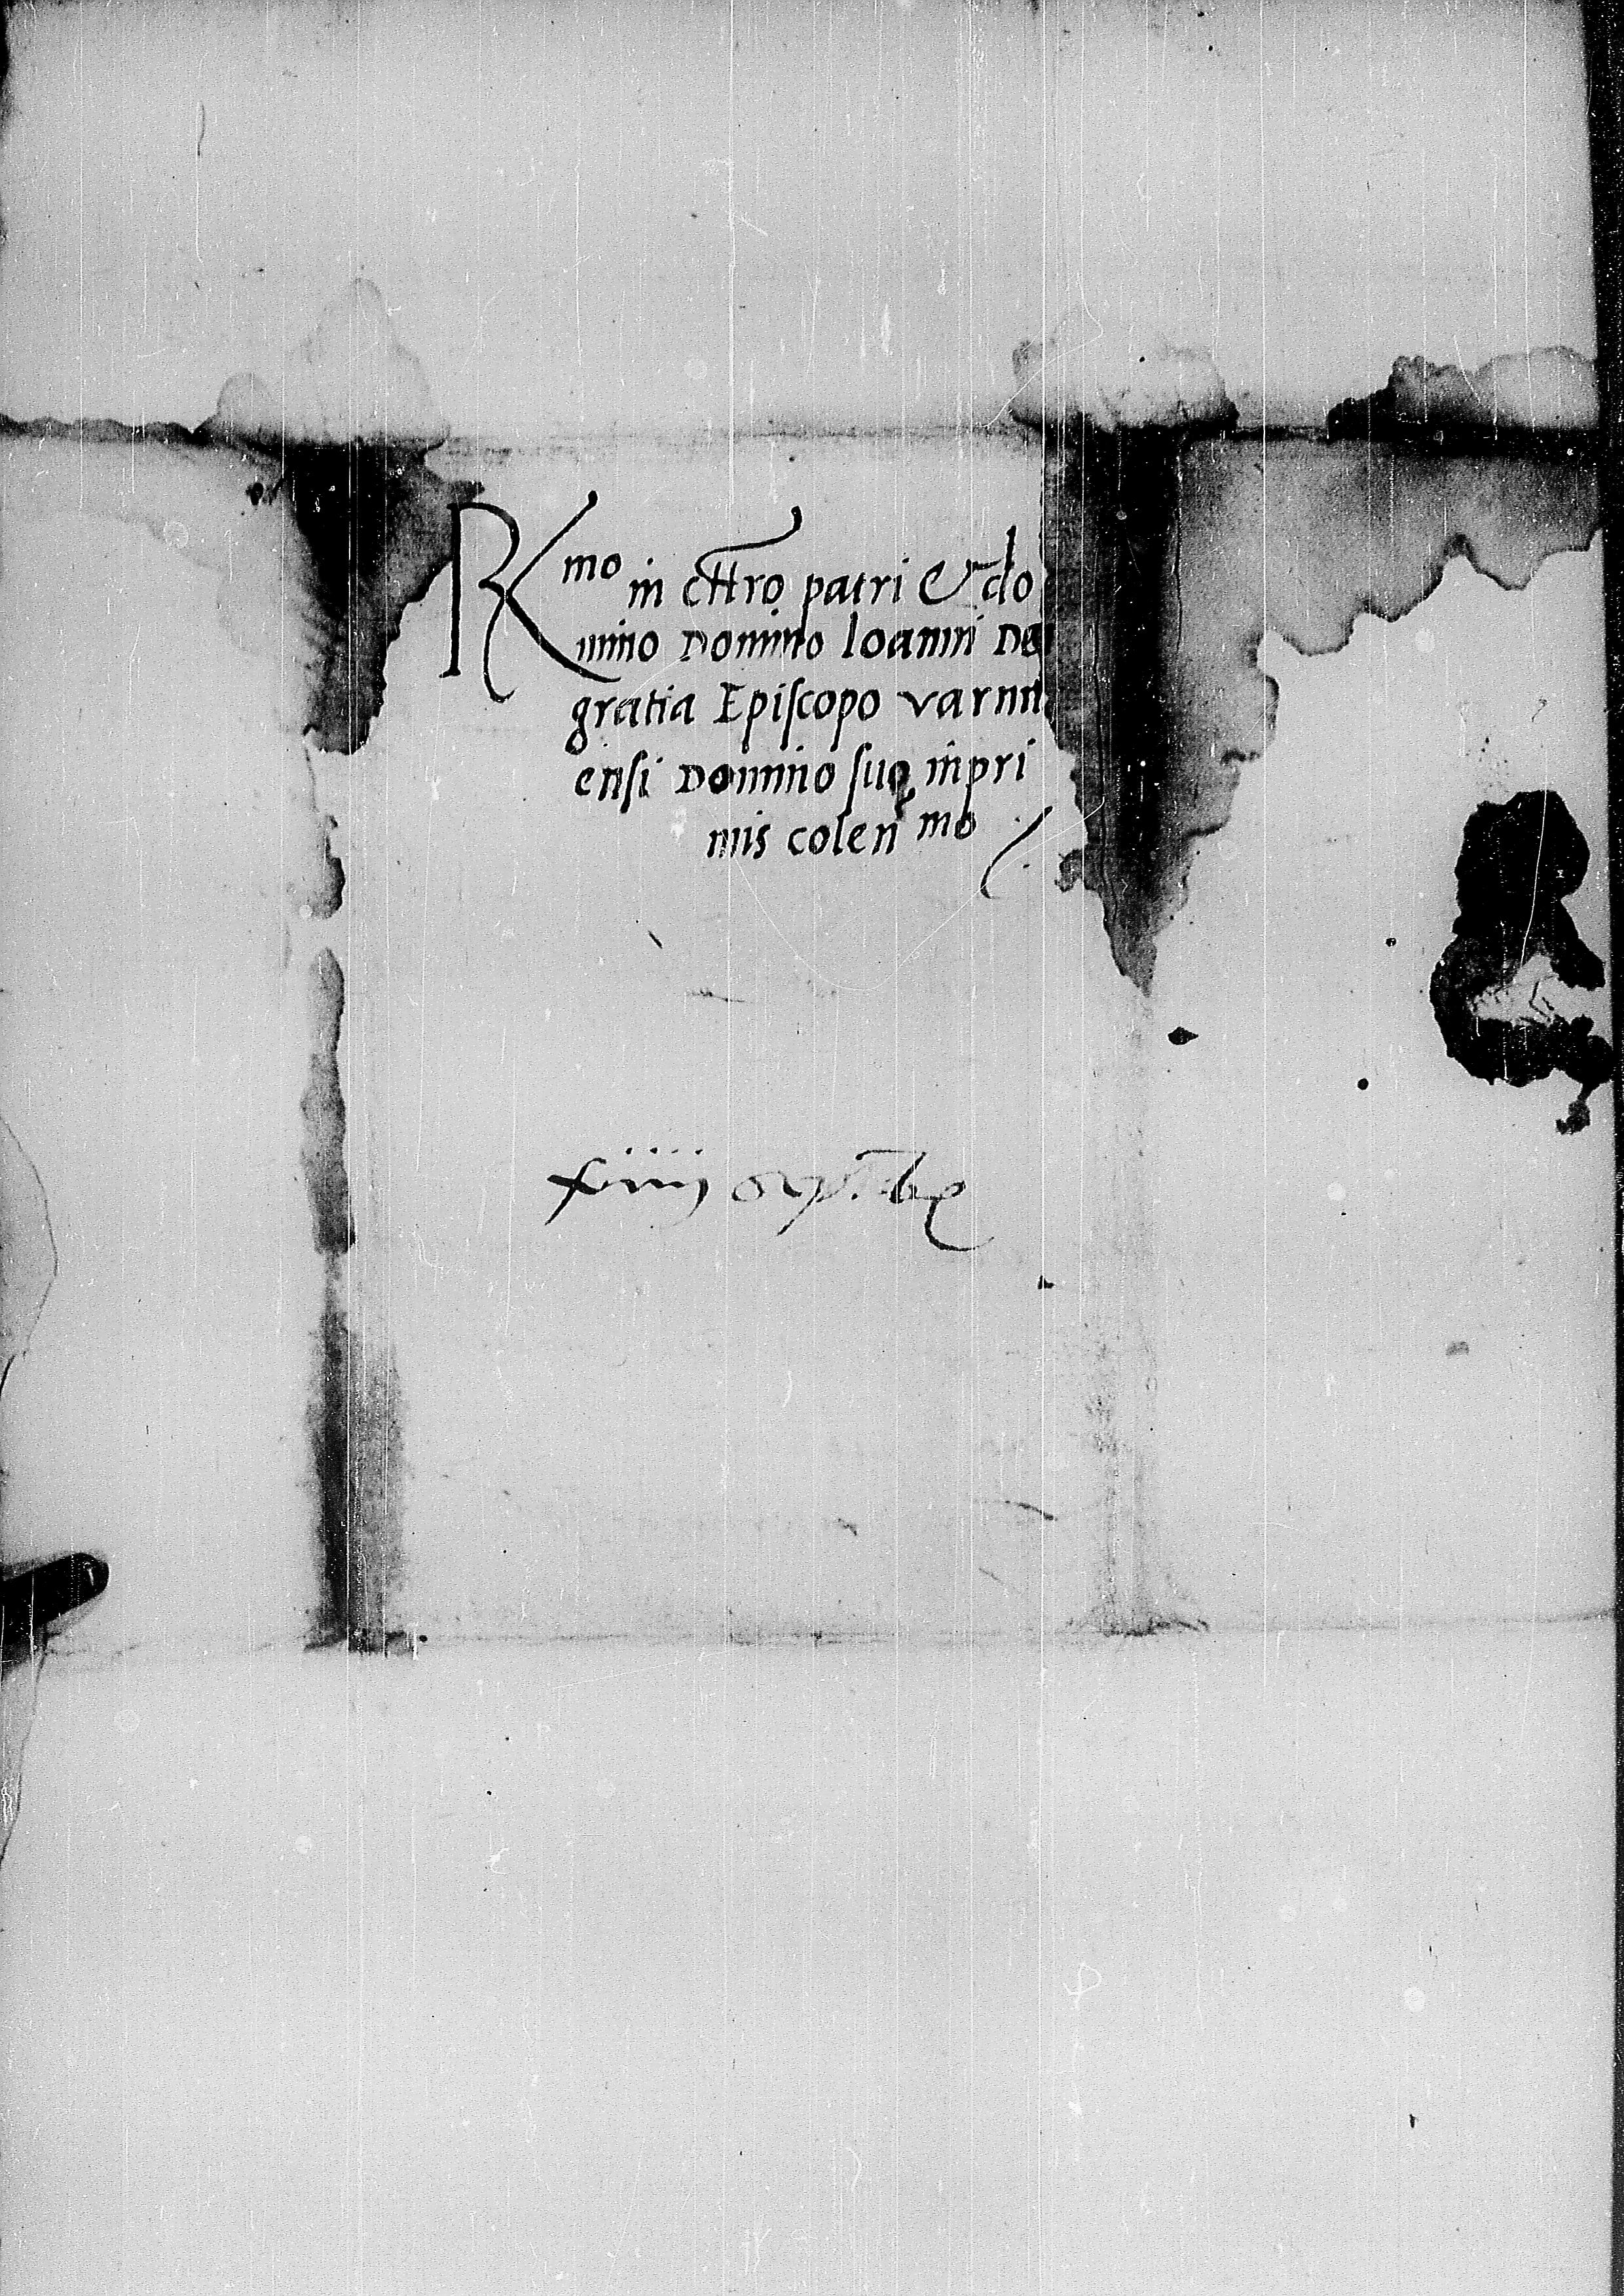 R mo in chro patri & do
mino Domino Ioanni De
gratia Episcopo varmi
ensi Domino suo inpri
mis colen mo
xiiij